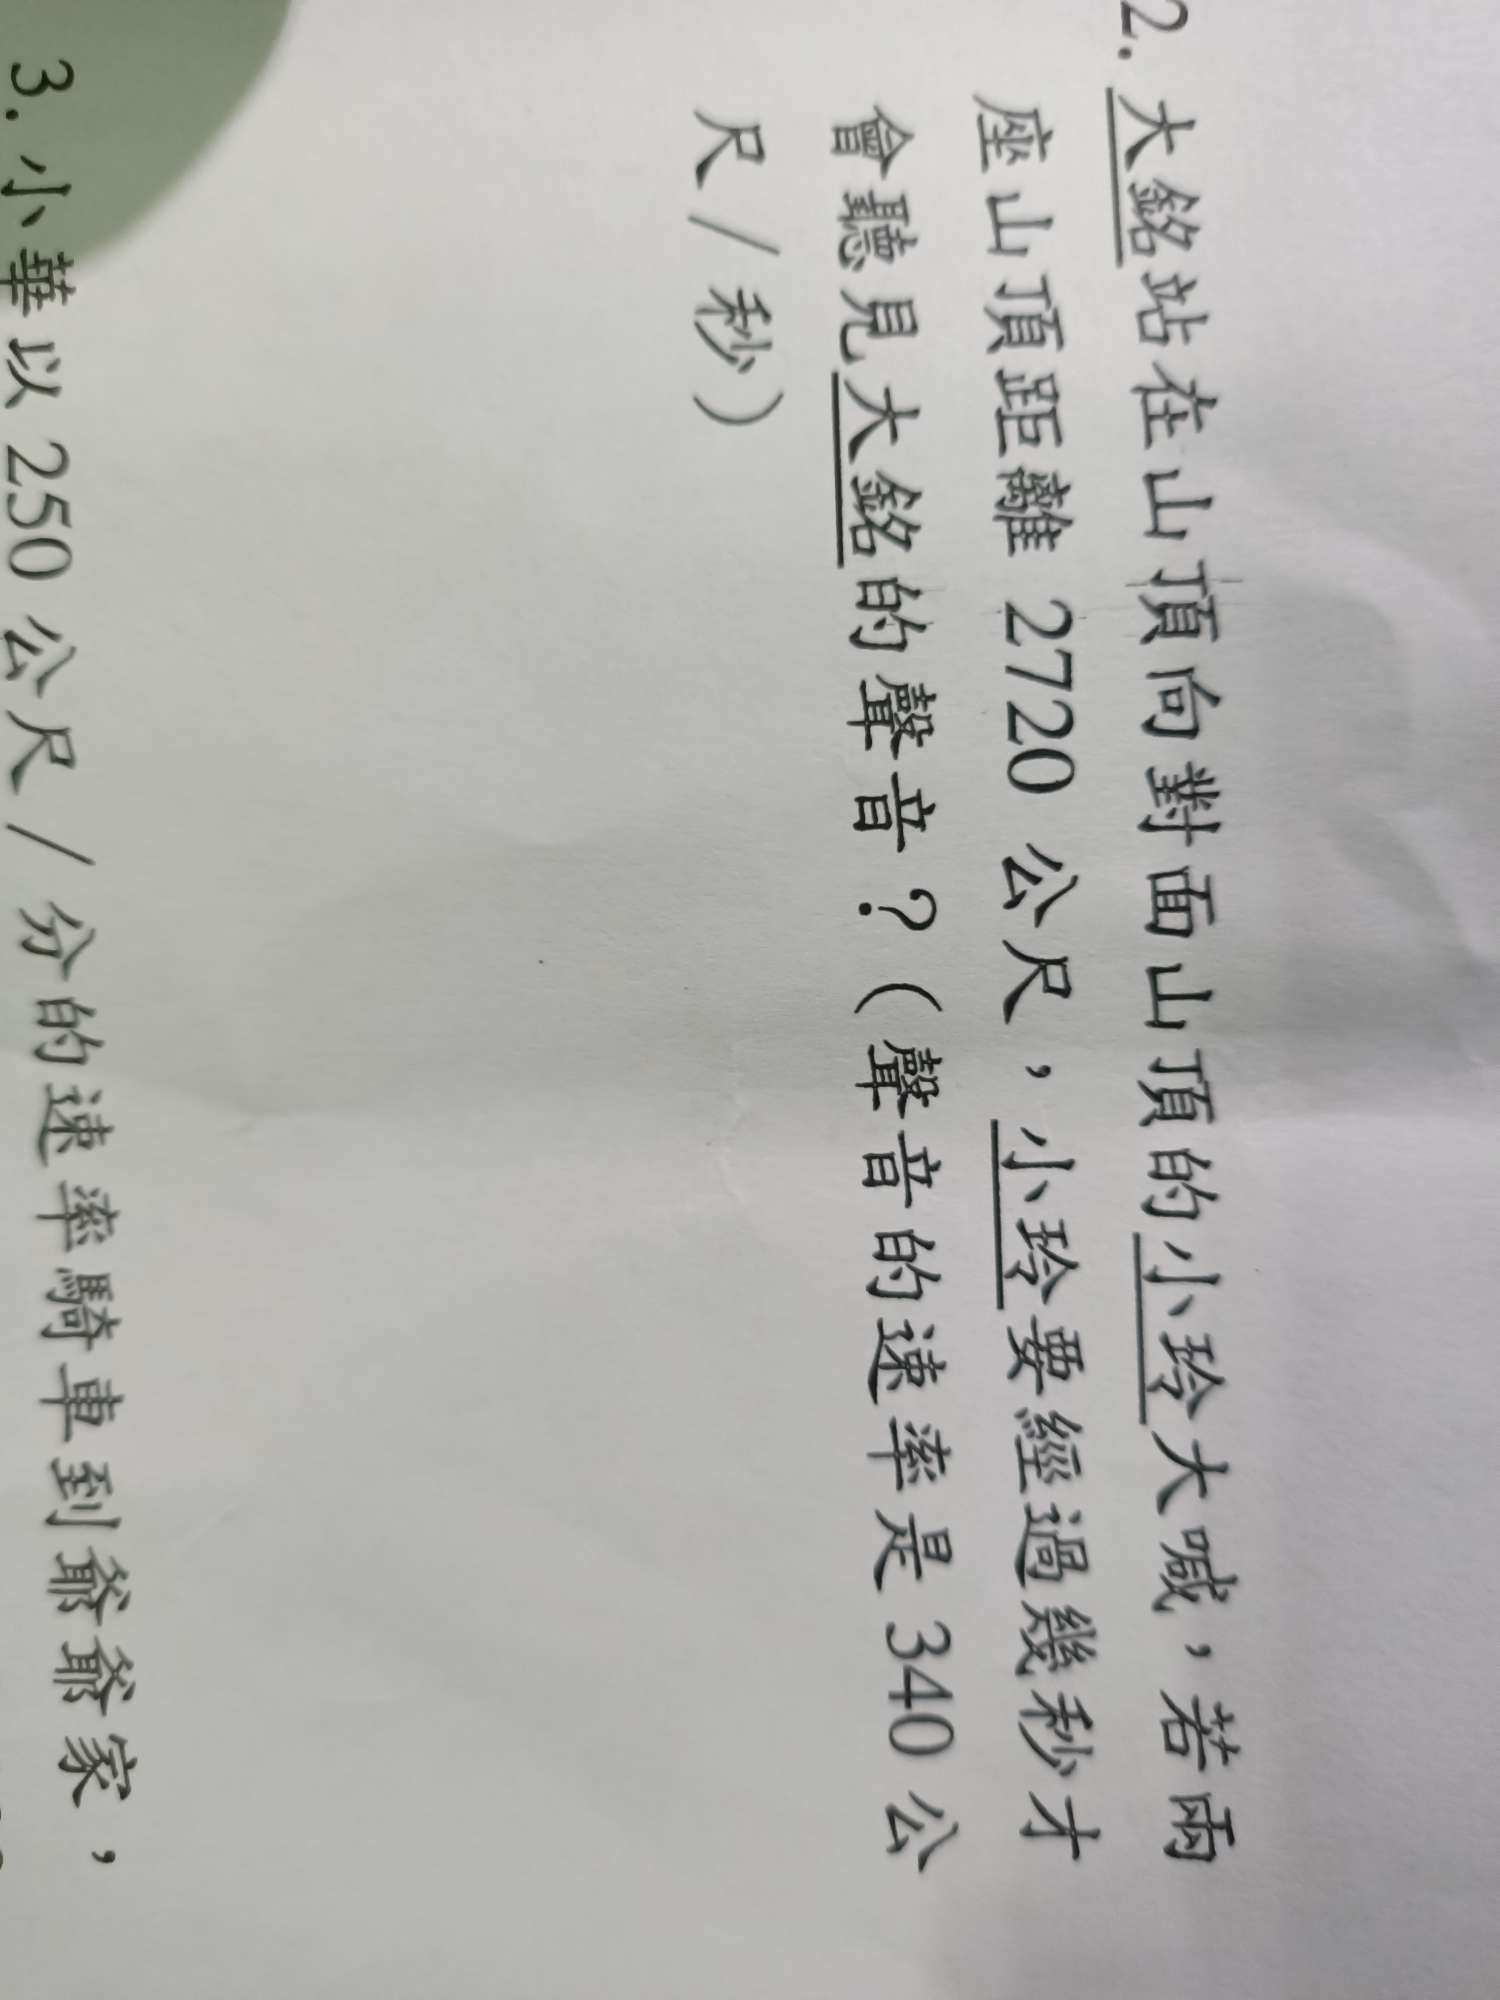 2. 大銘站在山頂向對面山頂的小玲大喊，若兩
座山頂距離 2720 公尺，小玲要經過幾秒才
會聽見大銘的聲音？（聲音的速率是 340 公
尺 / 秒）
3. 小華以 250 公尺 / 分的速率騎車到爺爺家，